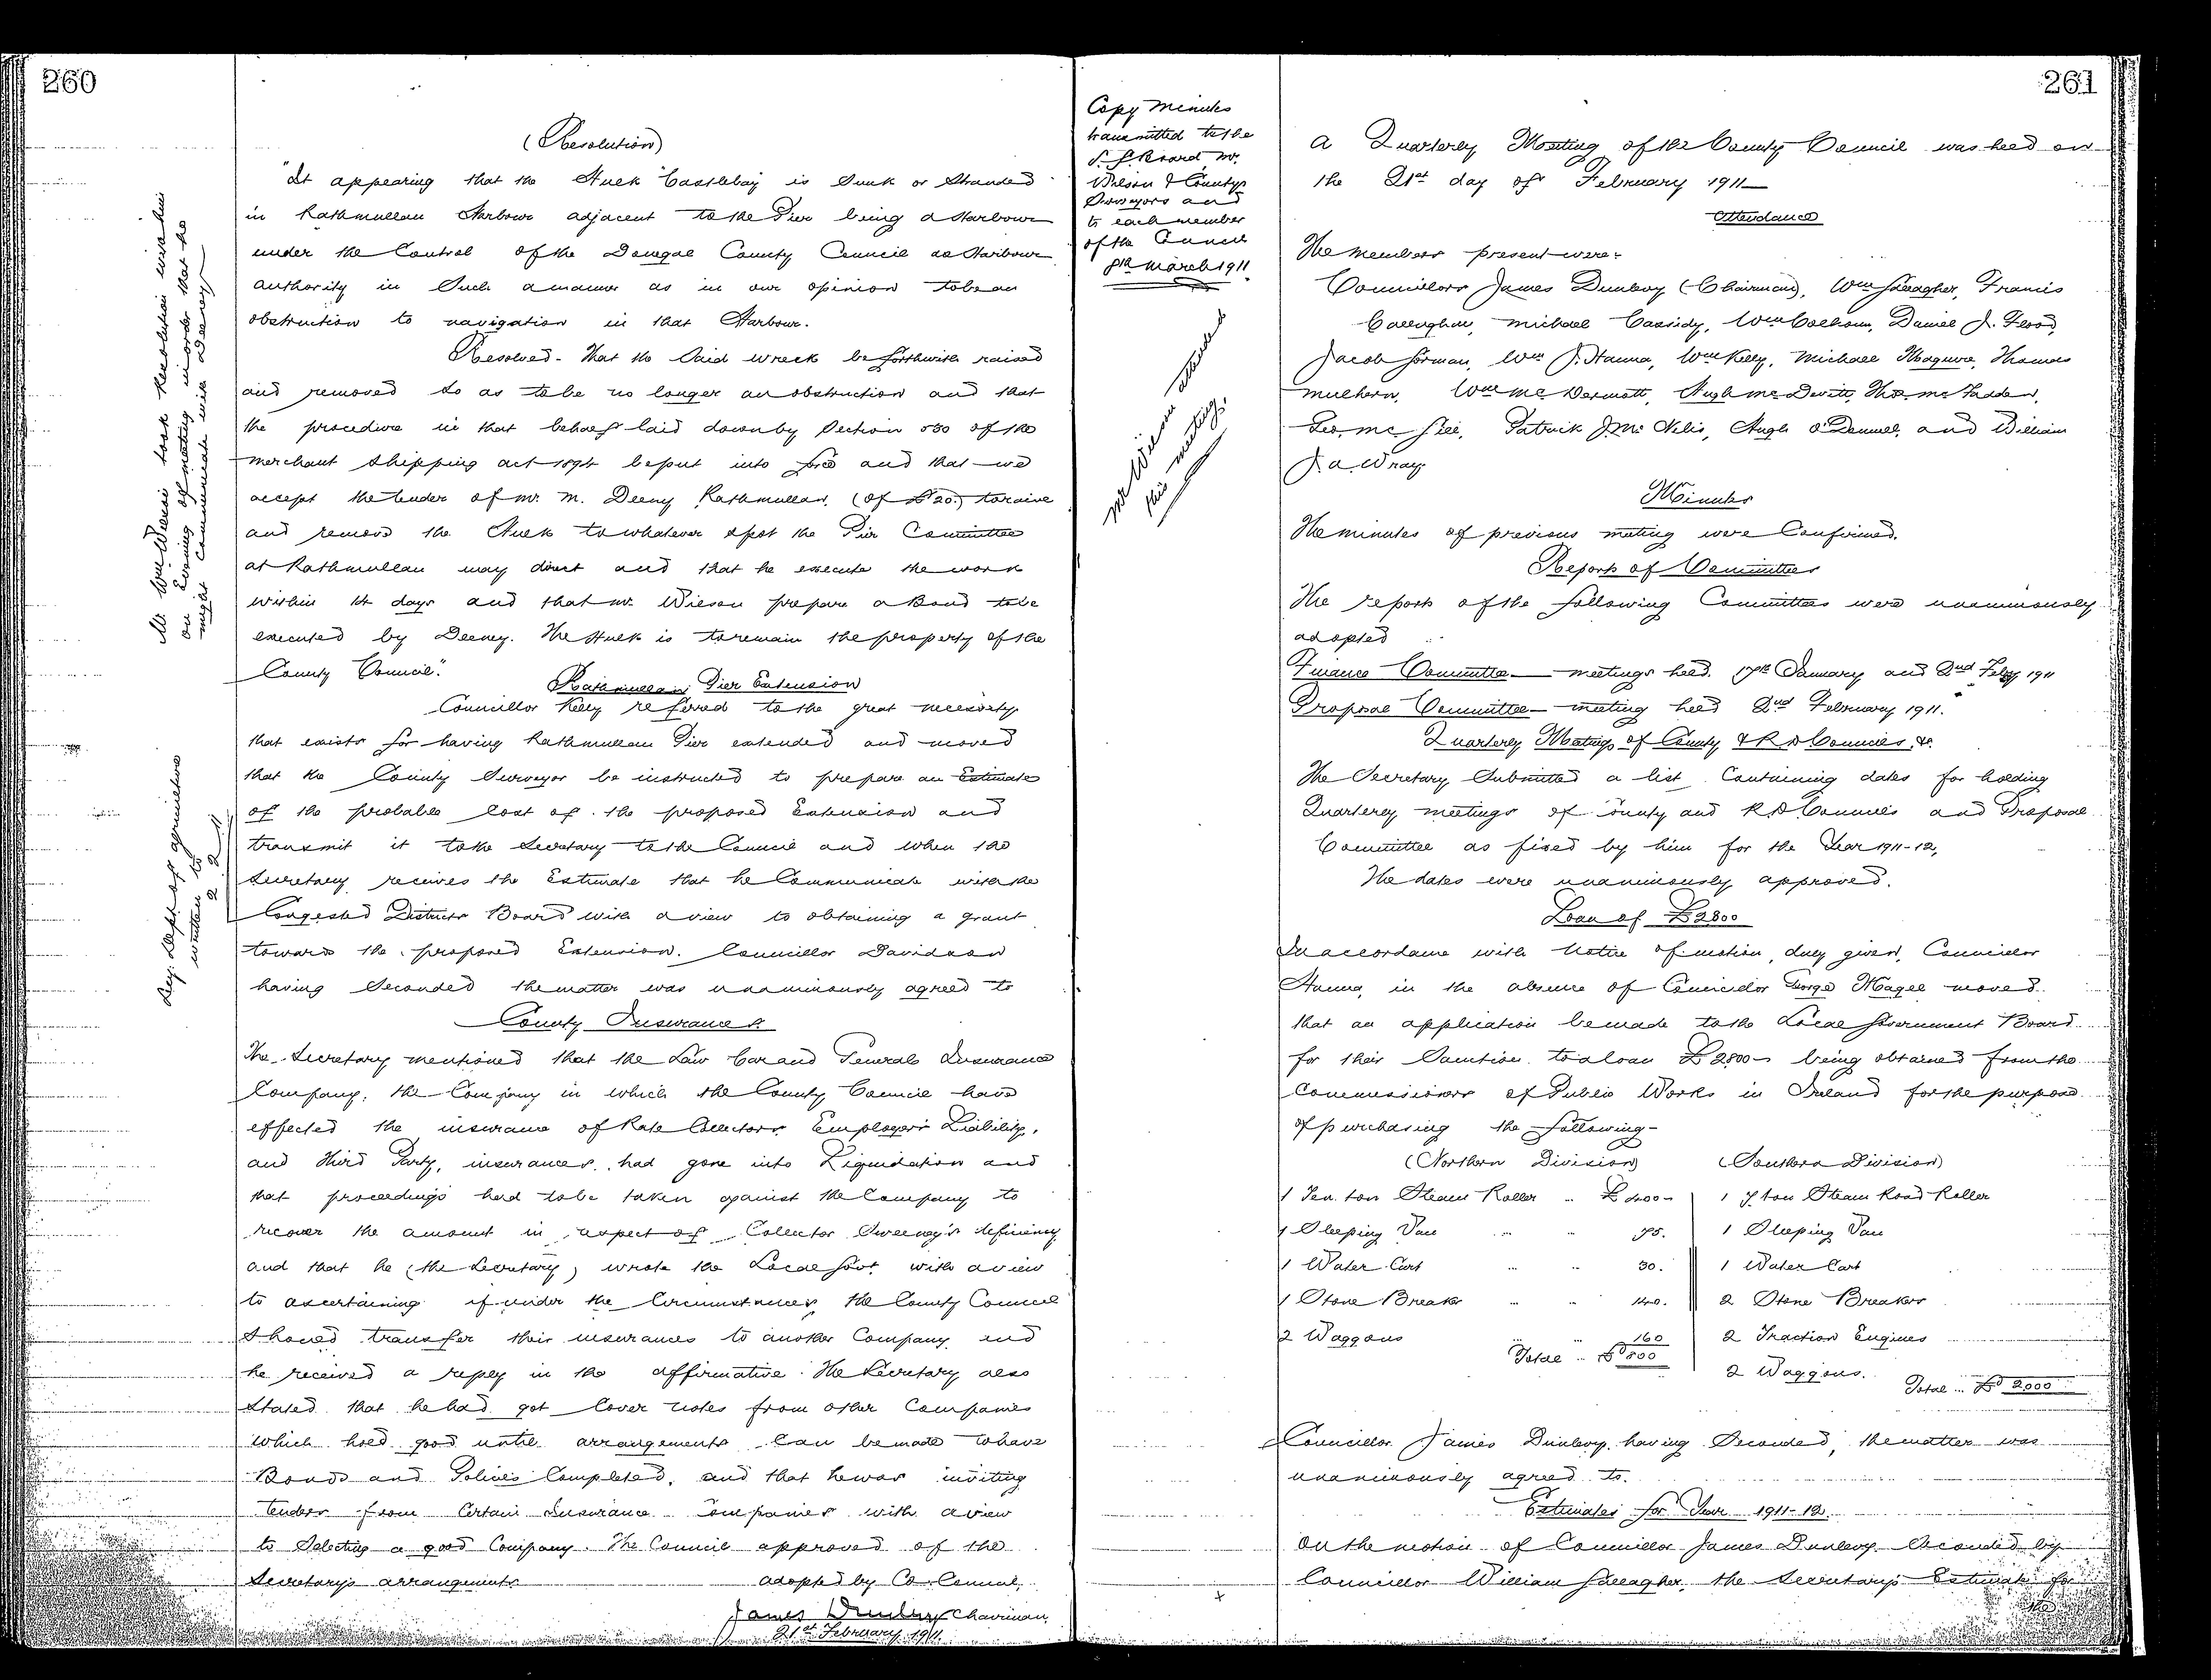 260
(Resolution)
"It appearing that the Hulk "Castlebay is Sunk or Stranded
in Rathmullan Harbour adjacent to the Pier being a Harbour
under the Control of the Donegal County Council as Harbour
authority in Such a manner as in our opinion to be an
obstruction to navigation in that Harbour.
Resolved - That the Said wreck be forthwith raised
and removed so as to be no longer an obstruction and that
the procedure in that behalf laid down by Section 530 of the
Merchant Shipping act 1894 be put into force and that we
accept the tender of Mr. M. Deeny Rathmullan, (of £20.) to raise
and remove the Hulk to whatever spot the Pier Committee
at Rathmullan may direct and that he execute the work
within 14 days and that Mr. Wilson prepare a Bond to be
executed by Deeney. The Hulk is to remain the property of the
County Council".
Rathmullan Pier Extension
Councillor Kelly referred to the great necessity
that exists for having Rathmullan Pier extended and moved
that the County Surveyor be instructed to prepare an Estimate
of the probable Cost of the proposed Extension and
transmit it to the Secretary to the Council and when the
Secretary receives the Estimate that he Communicate with the
Congested Districts Board with a view to obtaining a grant
towards the proposed Extension. Councillor Davidson
having Seconded the matter was unanimously agreed to
County Insurances
The Secretary mentioned that the Law Car and General Insurance
Company, the Company in which the County Council have
effected the insurance of Rate Collectors Employers Liability,
and Third Party, insurances, had gone into Liquidation and
that proceedings had to be taken against the Company to
recover the amount in respect of Collector Sweeney's deficiency
and that he (the Secretary) wrote the Local Govt with a view
to ascertaining if under the Circumstances the County Council
should transfer their insurances to another Company and
he received a reply in the affirmative. The Secretary also
Stated that he had got Cover notes from other Companies
which hold good until arrangements Can be made to have
Bonds and Policies Completed, and that he was inviting
tenders from Certain Insurance Companies with a view
to Selecting a good Company. The Council approved of the
Secretary's arrangements adopted by Co. Council,
James Dunlevy Chairman,
21st February 1911.
Mr Wm Wilson took Resolution with him
on Evening of meeting in order that he
might communicate with Deeney
Dept of agriculture
written to
Copy Minutes
transmitted to the
L. G. Board Mr.
Wilson & County
Surveyors and
to each member
of the Council
8th March 1911
Mr Wilson
this meeting.
261
A Quarterly Meeting of the County Council was held on
the 21st day of February 1911
Attendance
The members present were:-
Councillors James Dunlevy (Chairman), Wm Gallagher, Francis
Callaghan, Michael Cassidy, Wm Colhoun, Daniel J. Flood,
Jacob Gorman, Wm J. Hanna, Wm Kelly, Michael Maguire, Thomas
Mulhern, Wm Mc Dermott, Hugh Mc Devitt, Thos. Mc Fadden,
Geo. Mc Gill, Patrick J. Mc Nelis, Hugh O'Donnell, and William
J. A. Wray.
Minutes
The minutes of previous meeting were Confirmed.
Reports of Committees
The reports of the following Committees were unanimously
adopted
Finance Committee - meetings held. 17th January and 2nd Feby 1911
Proposal Committee - meeting held 2nd February 1911.
Quarterly Meetings of County & R D Councils, &c.
The Secretary Submitted a list Containing dates for holding
Quarterly meetings of County and R. D Councils and Proposal
Committee as fixed by him for the Year 1911-12,
The dates were unanimously approved.
Loan of £2800
In accordance with Notice of motion, duly given, Councillor
Hanna, in the absence of Councillor George Magee moved
that an application be made to the Local Government Board
for their Sanction to a loan £2,800 - being obtained from the
Commissioners of Public Works in Ireland for the purpose
of purchasing the following -
(Northern Division) (Southern Division)
1 Ten ton Steam Roller .. £400 - 1 7 ton Steam Road Roller
1 Sleeping Van .. .. 75. 1 Sleeping Van
1 Water Cart .. .. 30. 1 Water Cart
1 Stone Breaker .. .. 140. 2 Stone Breakers
2 Waggons .. .. 160 2 Traction Engines
Total .. £800 2 Waggons.
Total ... £2,000
Councillor James Dunlevy having Seconded, the matter was
unanimously agreed to.
Estimates for Year 1911-12.
On the motion of Councillor James Dunlevy Seconded by
Councillor William Gallagher, the Secretary's Estimate for
the